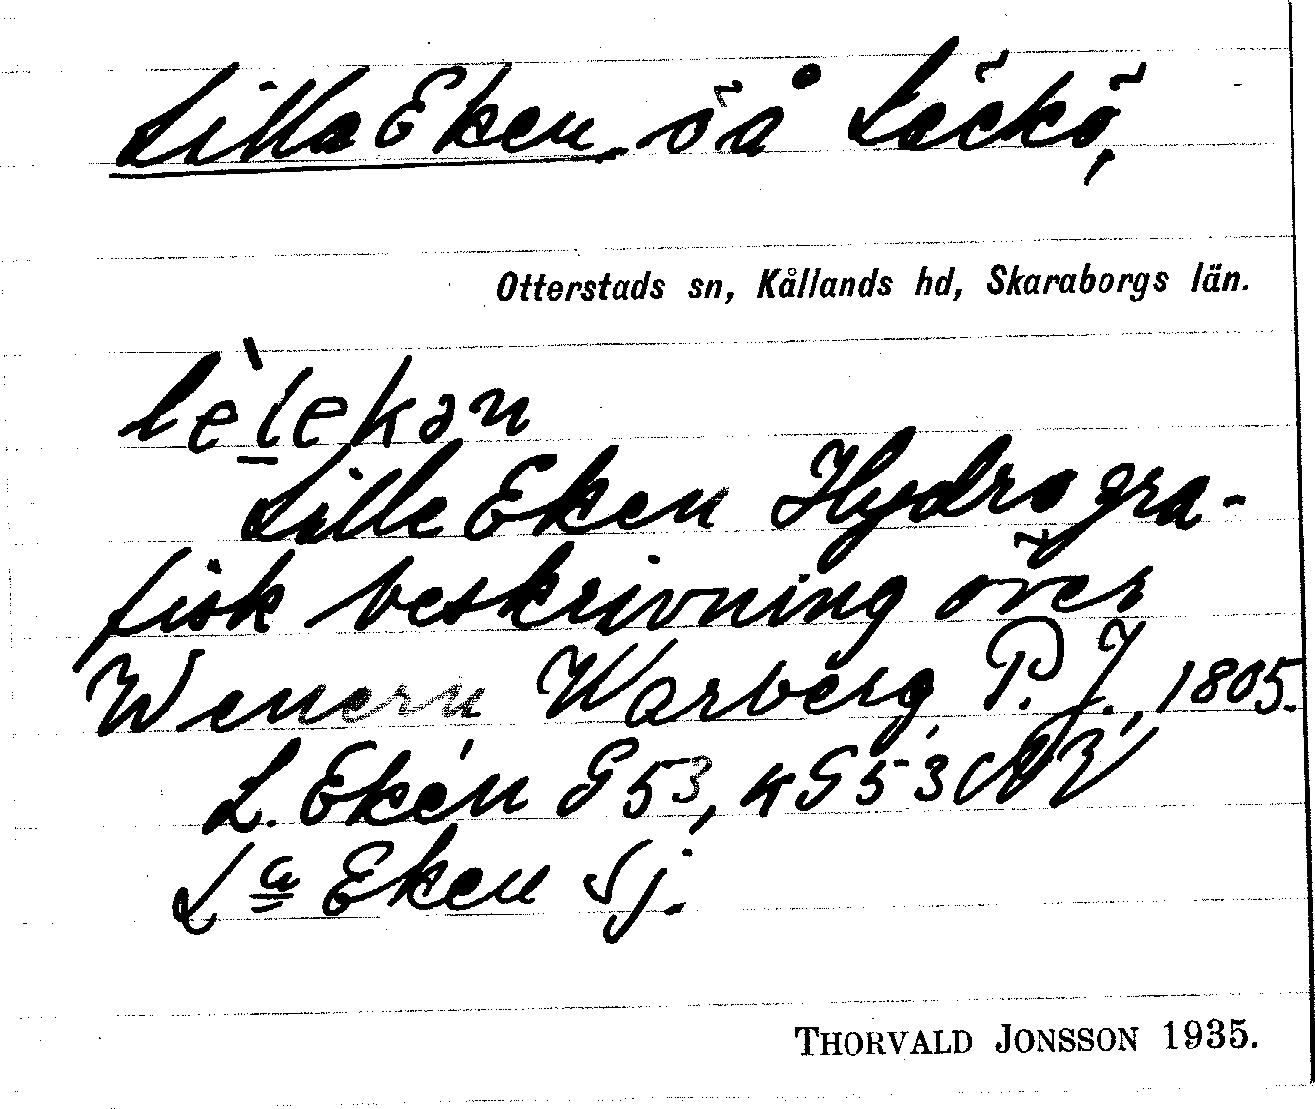 Lilla Eken, ö å Läckö,
Otterstads sn, Kållands hd, Skaraborgs län.
Lille Eken Hydrogra-
fisk beskrivning över
Wenern Warberg, P. J., 1805.
L. Eken G 53, KG 53
La Eken Sj.
THORVALD JONSSON 1935.